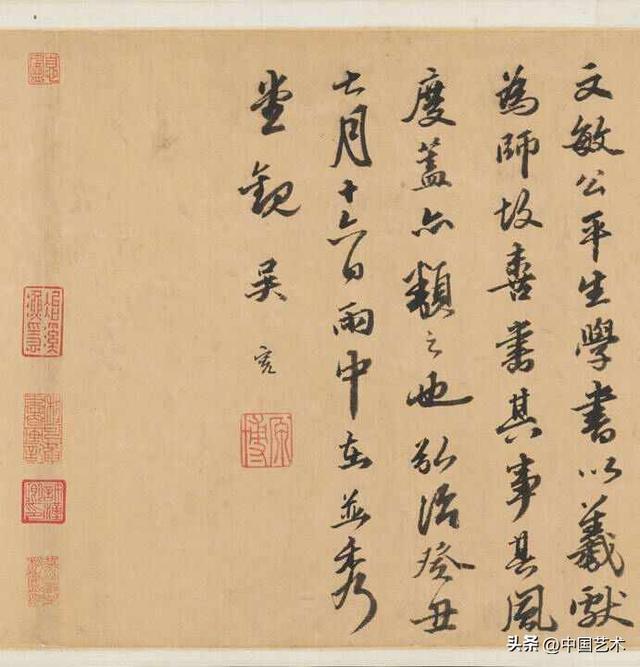 文敏公平生學書以羲獻
為師故善書其事其風
度蓋亦類之也弘治癸丑
七月十六日雨中在並秀
堂觀 吳寬
原博
头条 @中国艺术